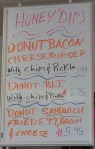 HONEY DIPS
DONUT BACON
CHEESEBURGER
With chips & Pickle
DONUT BLT
With chips
DONUT SANDWICH
FRIED EGG BACON
& CHEESE $5.95